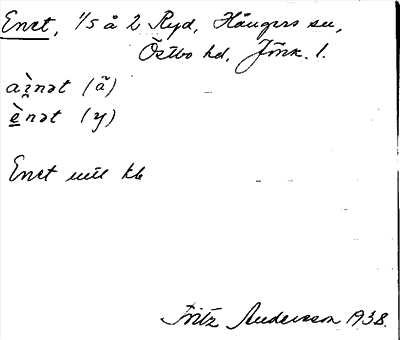 Enet, 1/5 å 2 Ryd, Hångers sn,
Östbo hd, Jönk. l.
aı̯̀nət (ä)
è̲nət (y)
Enet
Fritz Andersson 1938.